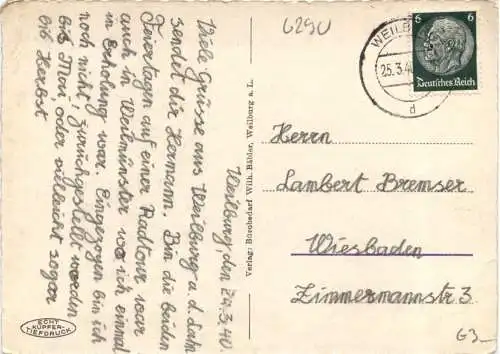 6290
WEILB
25.3.40
d
6 6
Deutsches Reich
Weilburg, den 24.3.40.
Viele Grüsse aus Weilburg a. d. Lahn
sendet dir Hermann. Bin die beiden
Feiertagen auf einer Radtour war
auch in Weilmünster wo ich einmal
in Erholung war. Eingezogen bin ich
noch nicht, zurückgestellt worden
bis Mai, oder vielleicht sogar
bis Herbst
Verlag: Bürobedarf Wilh. Bälder, Weilburg a. L.
Herrn
Lambert Bremser
Wiesbaden
Zimmermannstr. 3
ECHT
KUPFER-
TIEFDRUCK
G3-